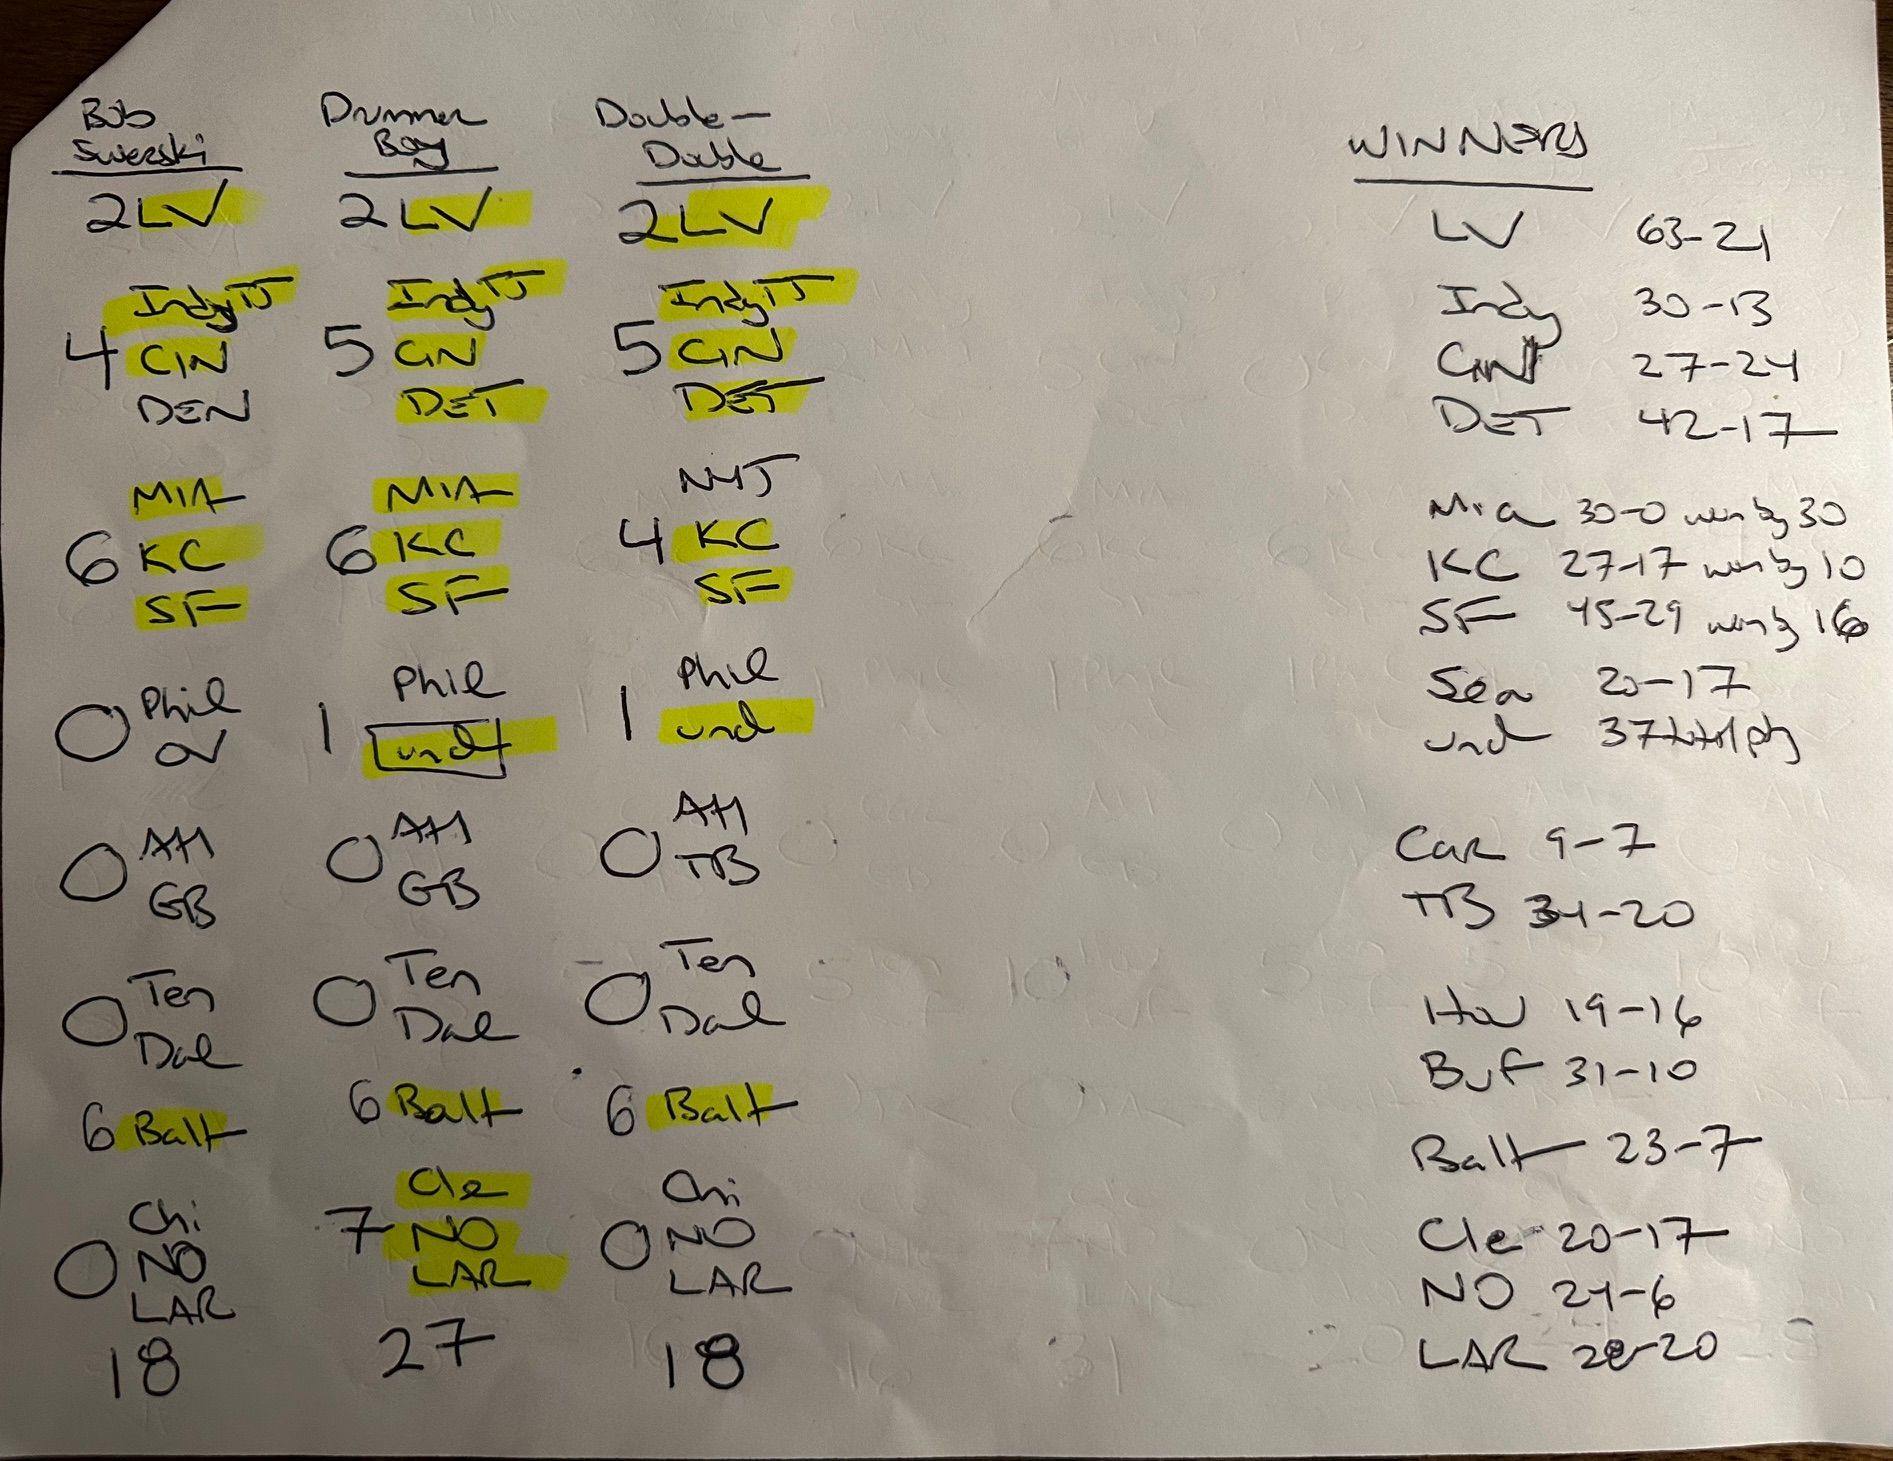 Bob
Swerski
2 LV
Indy TJ
4 CIN
DEN
MIA
6 KC
SF
0 Phil
OV
0 Atl
GB
0 Ten
Dal
6 Balt
Chi
0 NO
LAR
18
Drummer
Boy
2 LV
Indy TJ
5 CIN
DET
MIA
6 KC
SF
Phil
1 und
0 Atl
GB
0 Ten
Dal
6 Balt
Cle
7 NO
LAR
27
Double-
Double
2 LV
Indy TJ
5 CIN
DET
NYJ
4 KC
SF
Phil
1 und
0 Atl
TB
0 Ten
Dal
6 Balt
Chi
0 NO
LAR
18
WINNERS
LV 63-21
Indy 30-13
CIN 27-24
DET 42-17
Mia 30-0 won by 30
KC 27-17 won by 10
SF 45-29 won by 16
Sea 20-17
und 37
Car 9-7
TB 34-20
Hou 19-16
Buf 31-10
Balt 23-7
Cle 20-17
NO 24-6
LAR 28-20